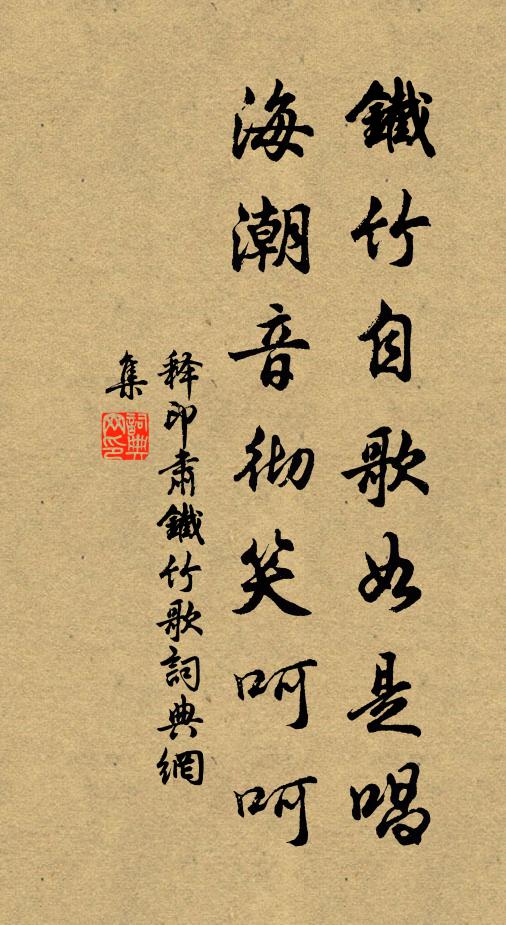 鐵竹自歌如是唱
海潮音彻笑呵呵
释印肅鐵竹歌詞典網
集
詞典網印